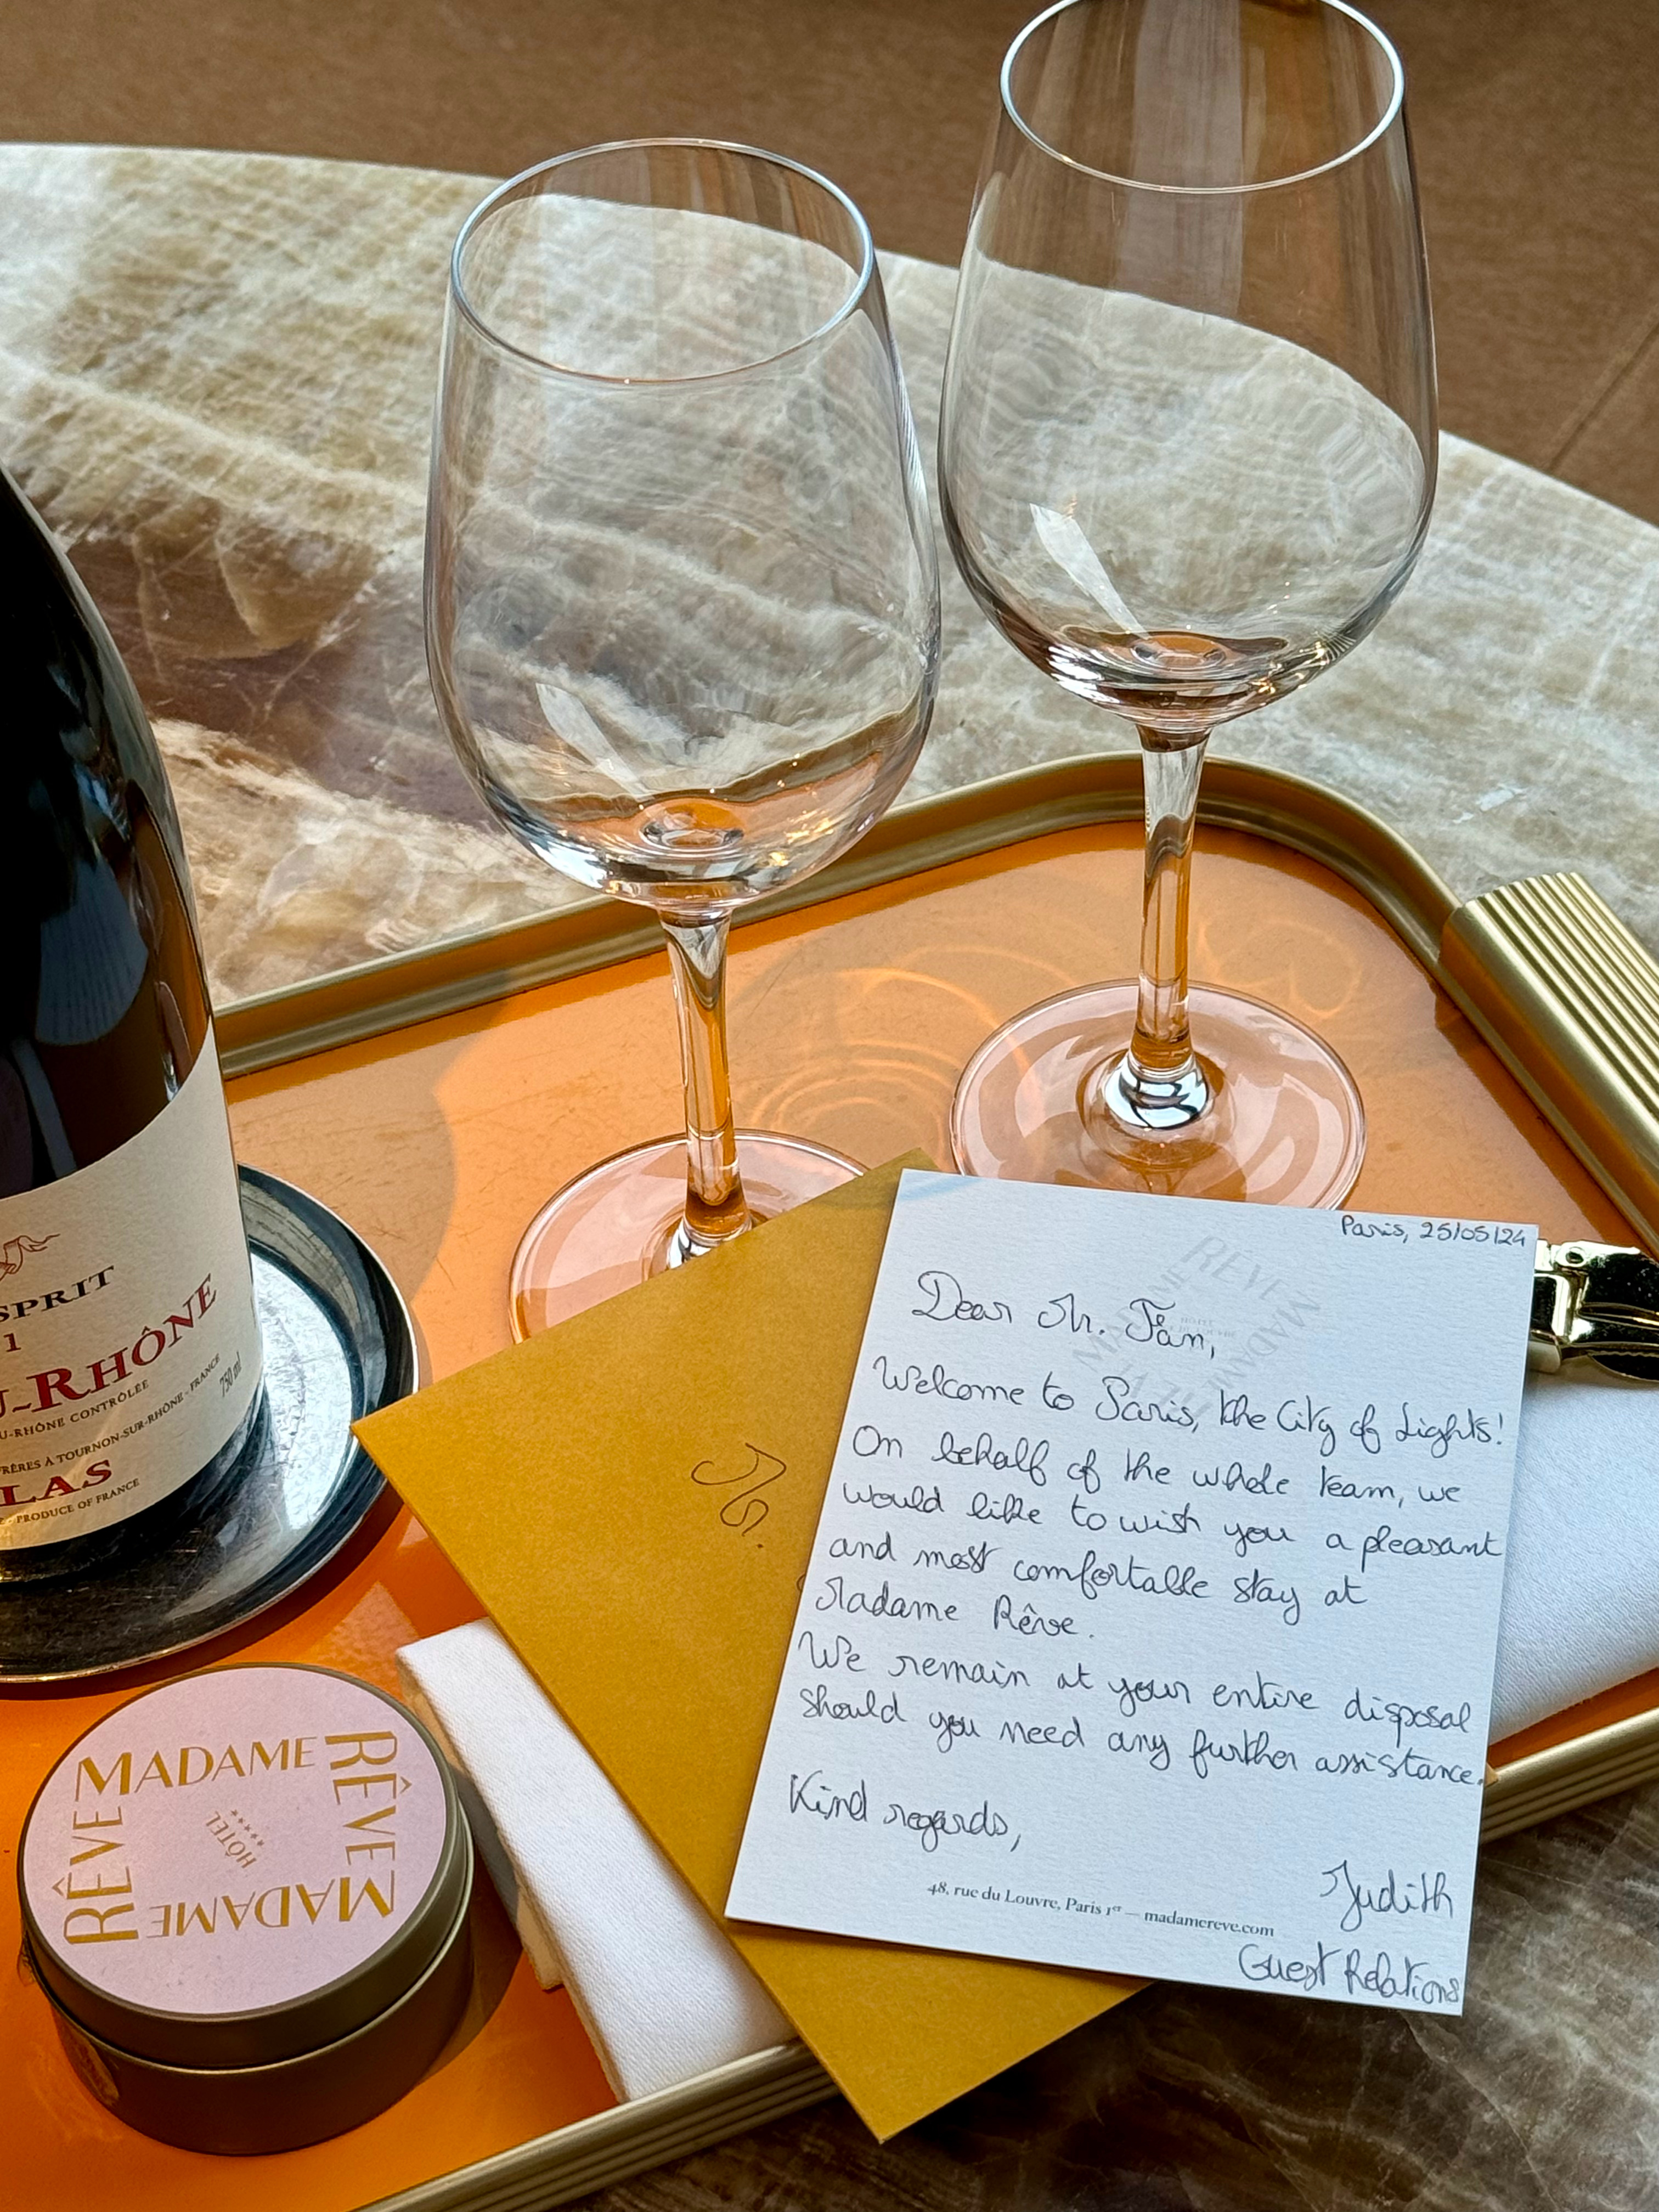 SPRIT
1
U-RHÔNE
U-RHÔNE CONTRÔLÉE
750 ml
FRÈRES À TOURNON-SUR-RHÔNE - FRANCE
LAS
- PRODUCE OF FRANCE
Paris, 25/05/24
RÊVE MADAME
Dear Mr. Fan,
Welcome to Paris, the City of Lights!
On behalf of the whole team, we
would like to wish you a pleasant
and most comfortable stay at
Madame Rêve.
We remain at your entire disposal
should you need any further assistance.
Kind regards,
Judith
Guest Relations
48, rue du Louvre, Paris 1er — madamereve.com
MADAME
RÊVE
MADAME
RÊVE
HÔTEL